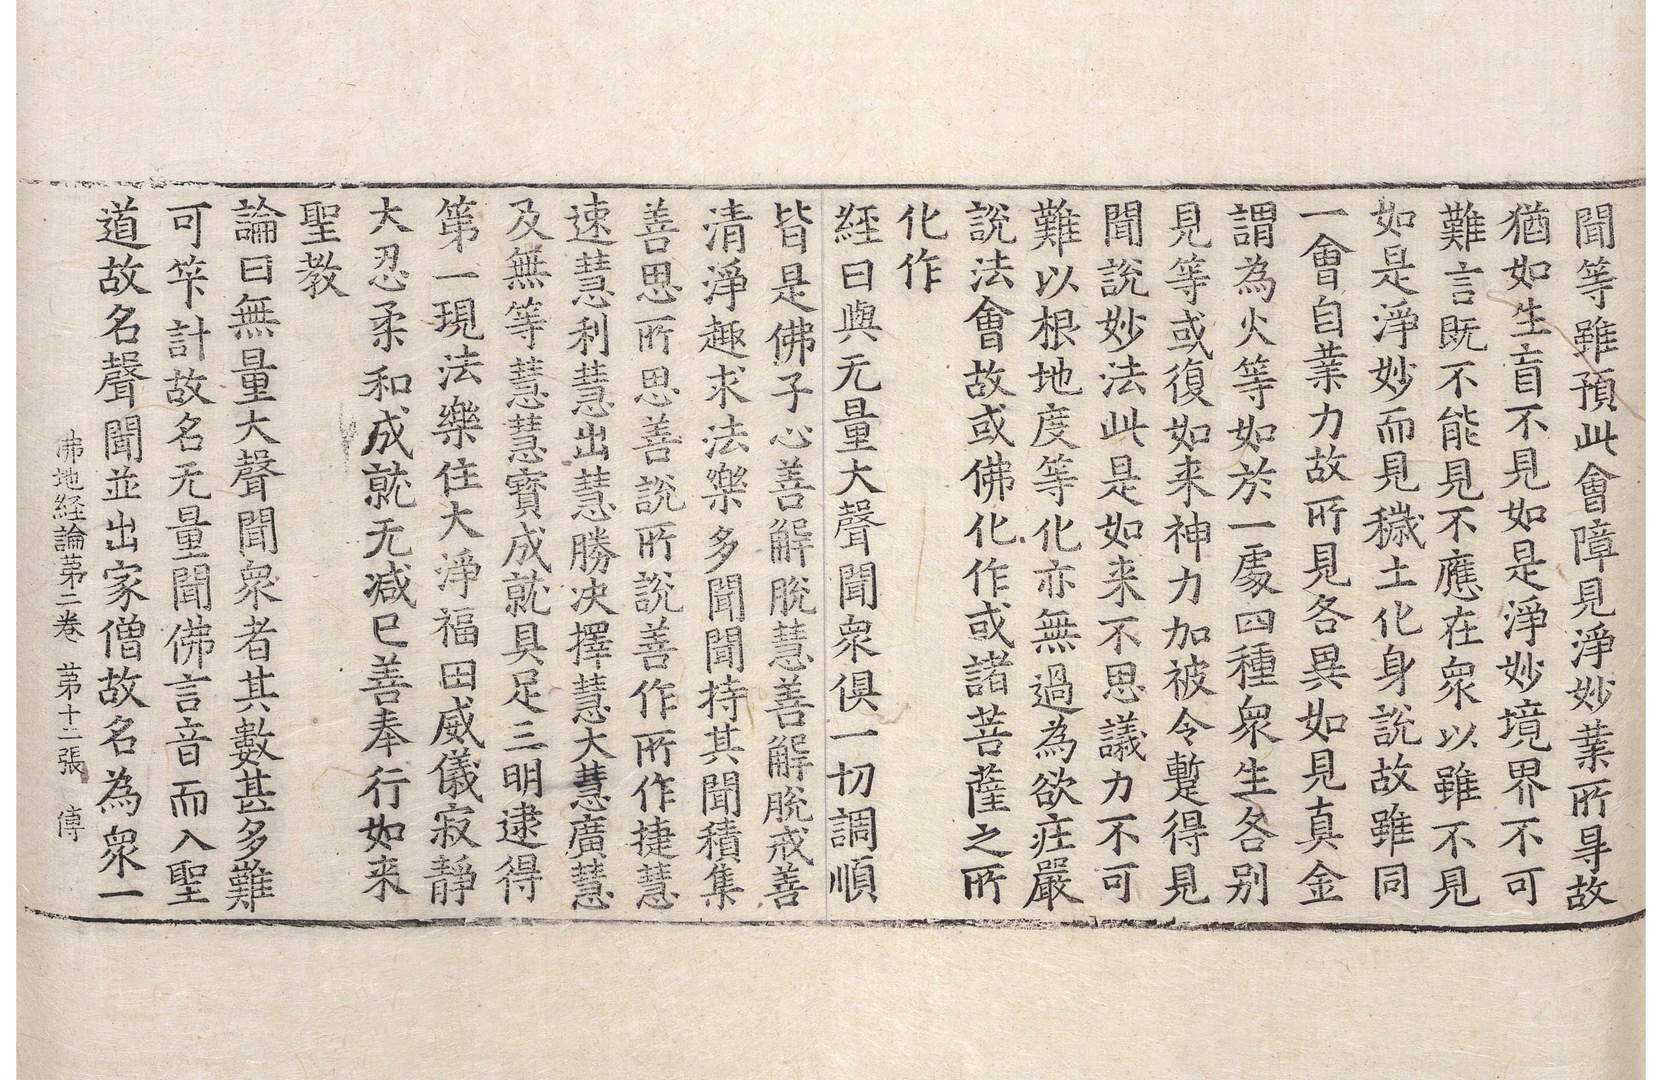 聞等雖預此會障見淨妙業所㝵故
猶如生盲不見如是淨妙境界不可
難言既不能見不應在衆以雖不見
如是淨妙而見穢土化身說故雖同
一會自業力故所見各異如見真金
謂為火等如於一處四種衆生各別
見等或復如来神力加被令蹔得見
聞說妙法此是如来不思議力不可
難以根地度等化亦無過為欲庄嚴
說法會故或佛化作或諸菩薩之所
化作
經曰與无量大聲聞衆俱一切調順
皆是佛子心善解脫慧善解脫戒善
清淨趣求法樂多聞聞持其聞積集
善思所思善說所說善作所作捷慧
速慧利慧出慧勝决擇慧大慧廣慧
及無等慧慧寶成就具足三明逮得
第一現法樂住大淨福田威儀寂靜
大忍柔和成就无减已善奉行如来
聖教
論曰無量大聲聞衆者其數甚多難
可筭計故名无量聞佛言音而入聖
道故名聲聞並出家僧故名為衆一
佛地経論苐二卷 苐十二張 傳